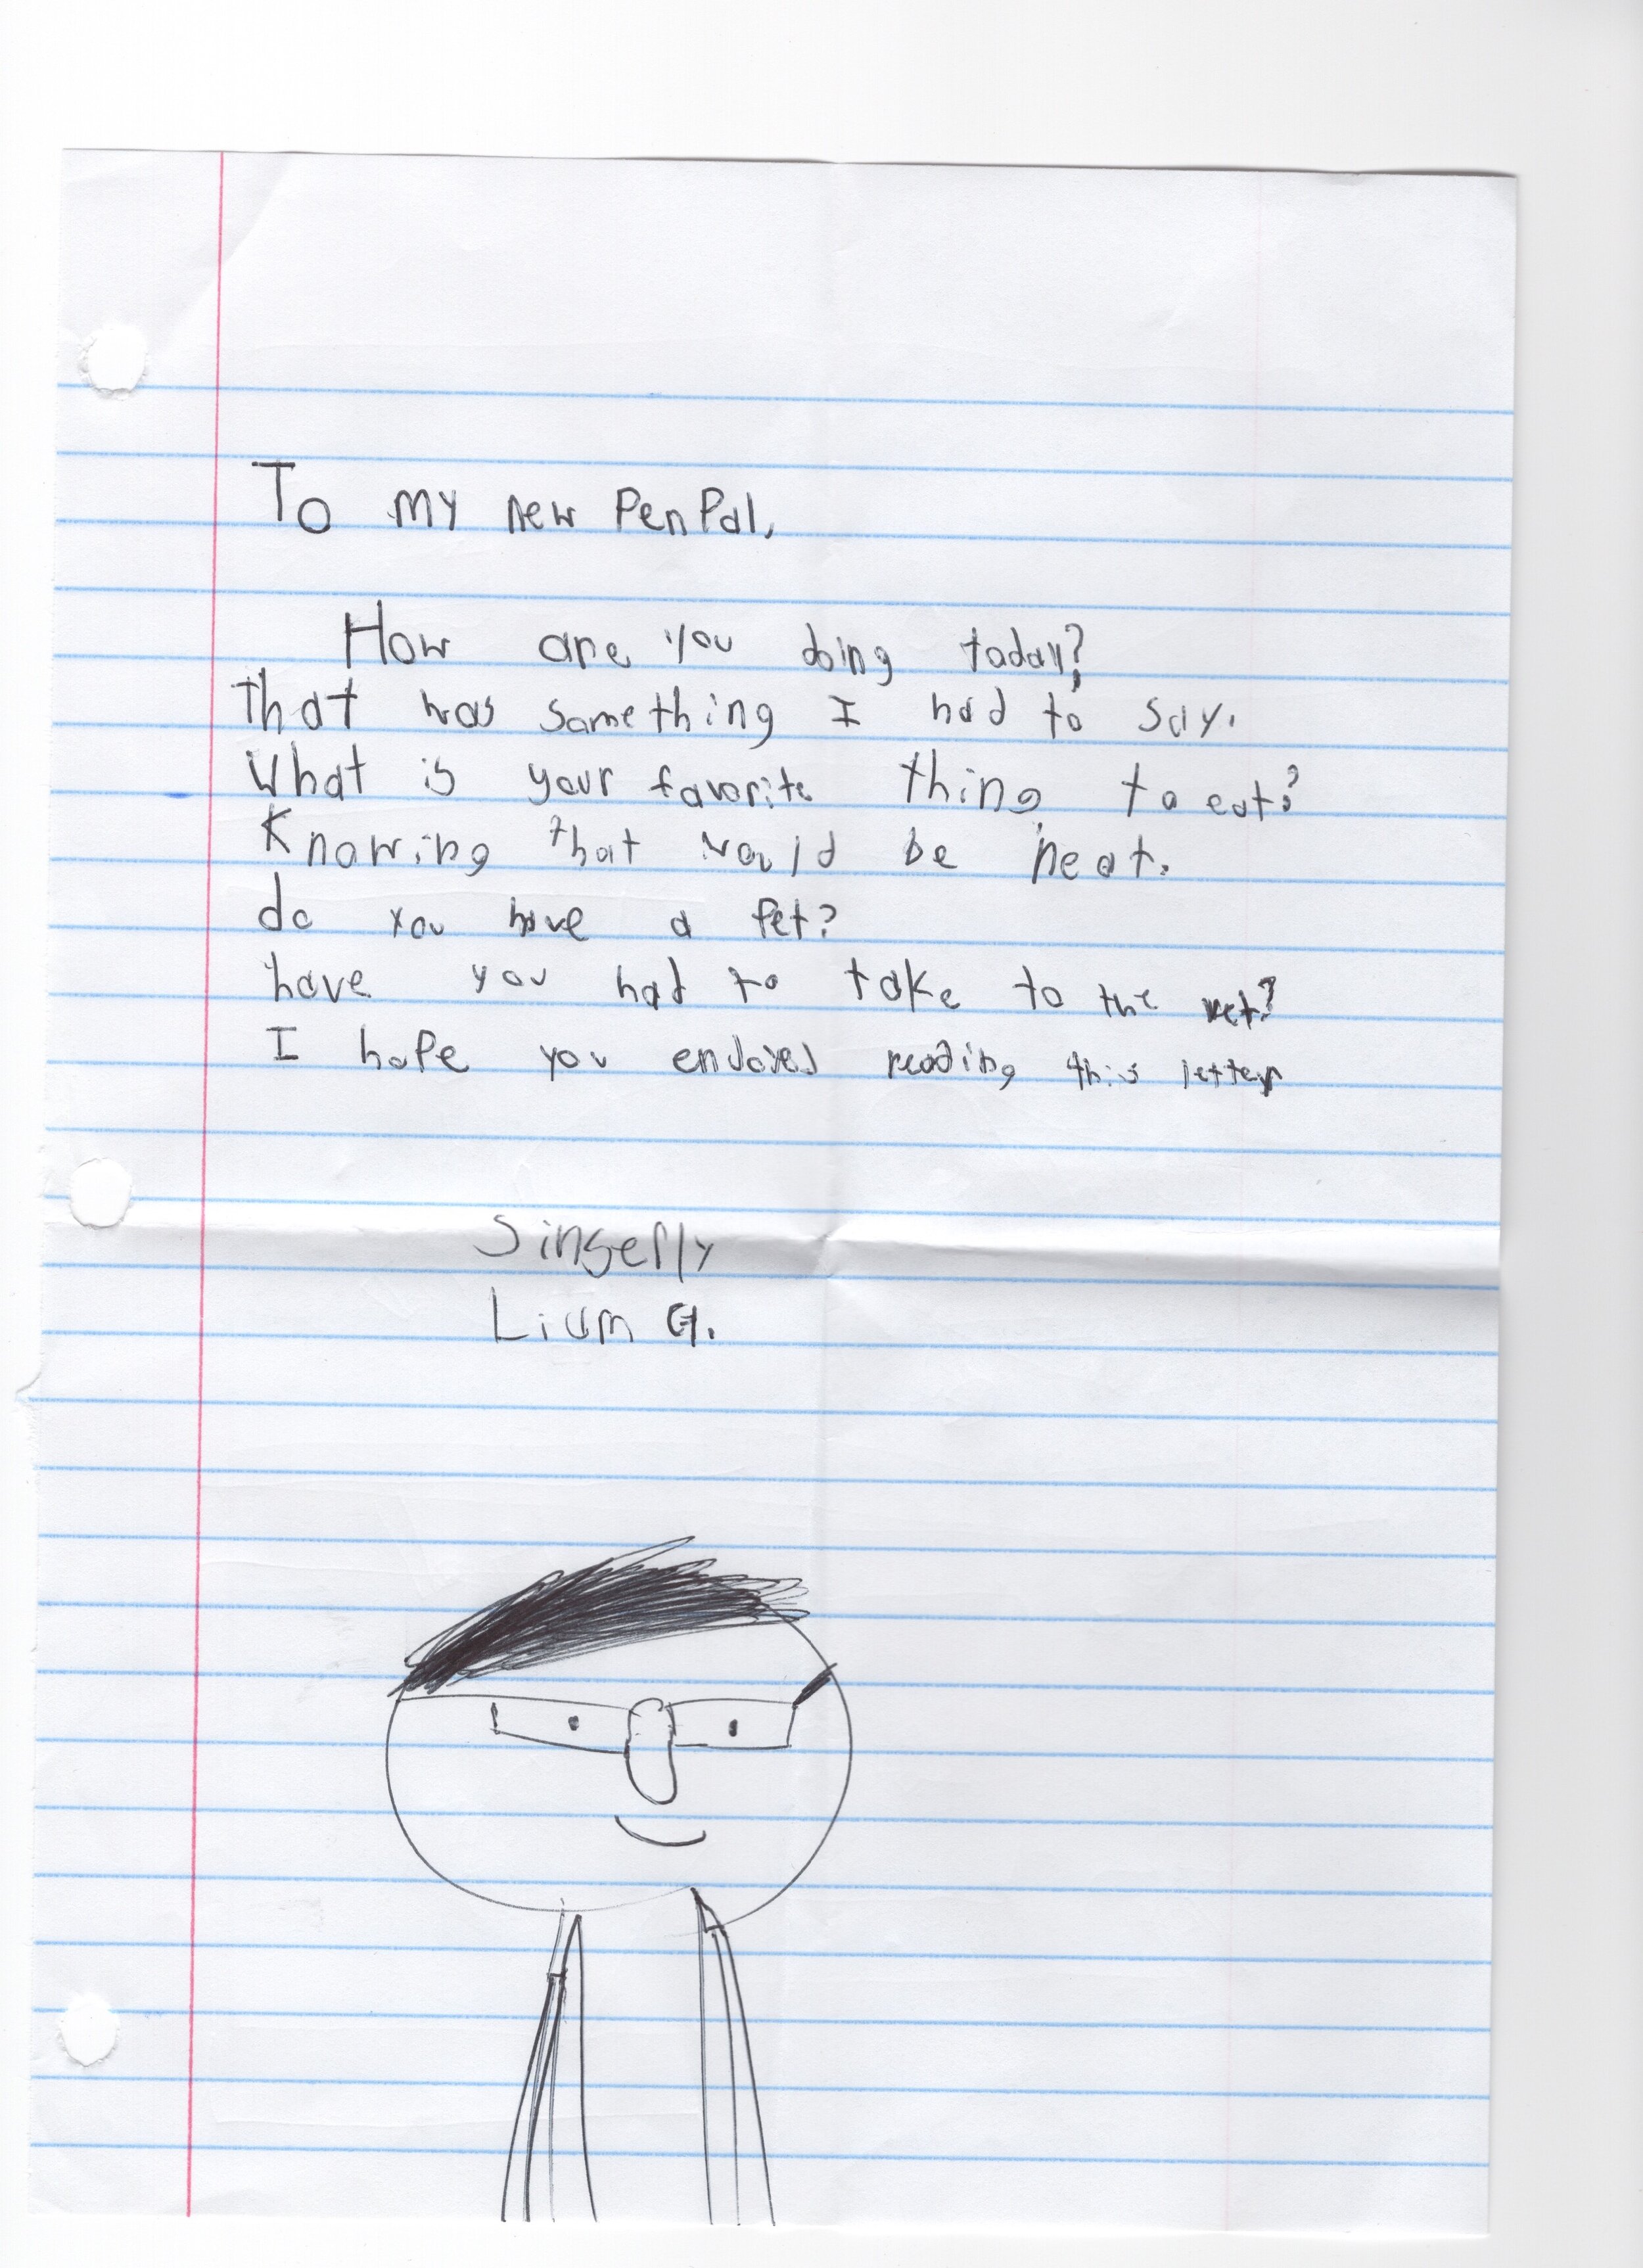 To my new PenPal,
How are you doing today?
That was something I had to say.
What is your favorite thing to eat?
Knowing that would be neat.
do you have a Pet?
have you had to take to the vet?
I hope you enjoyed reading this letter
Singerly
Lium G.